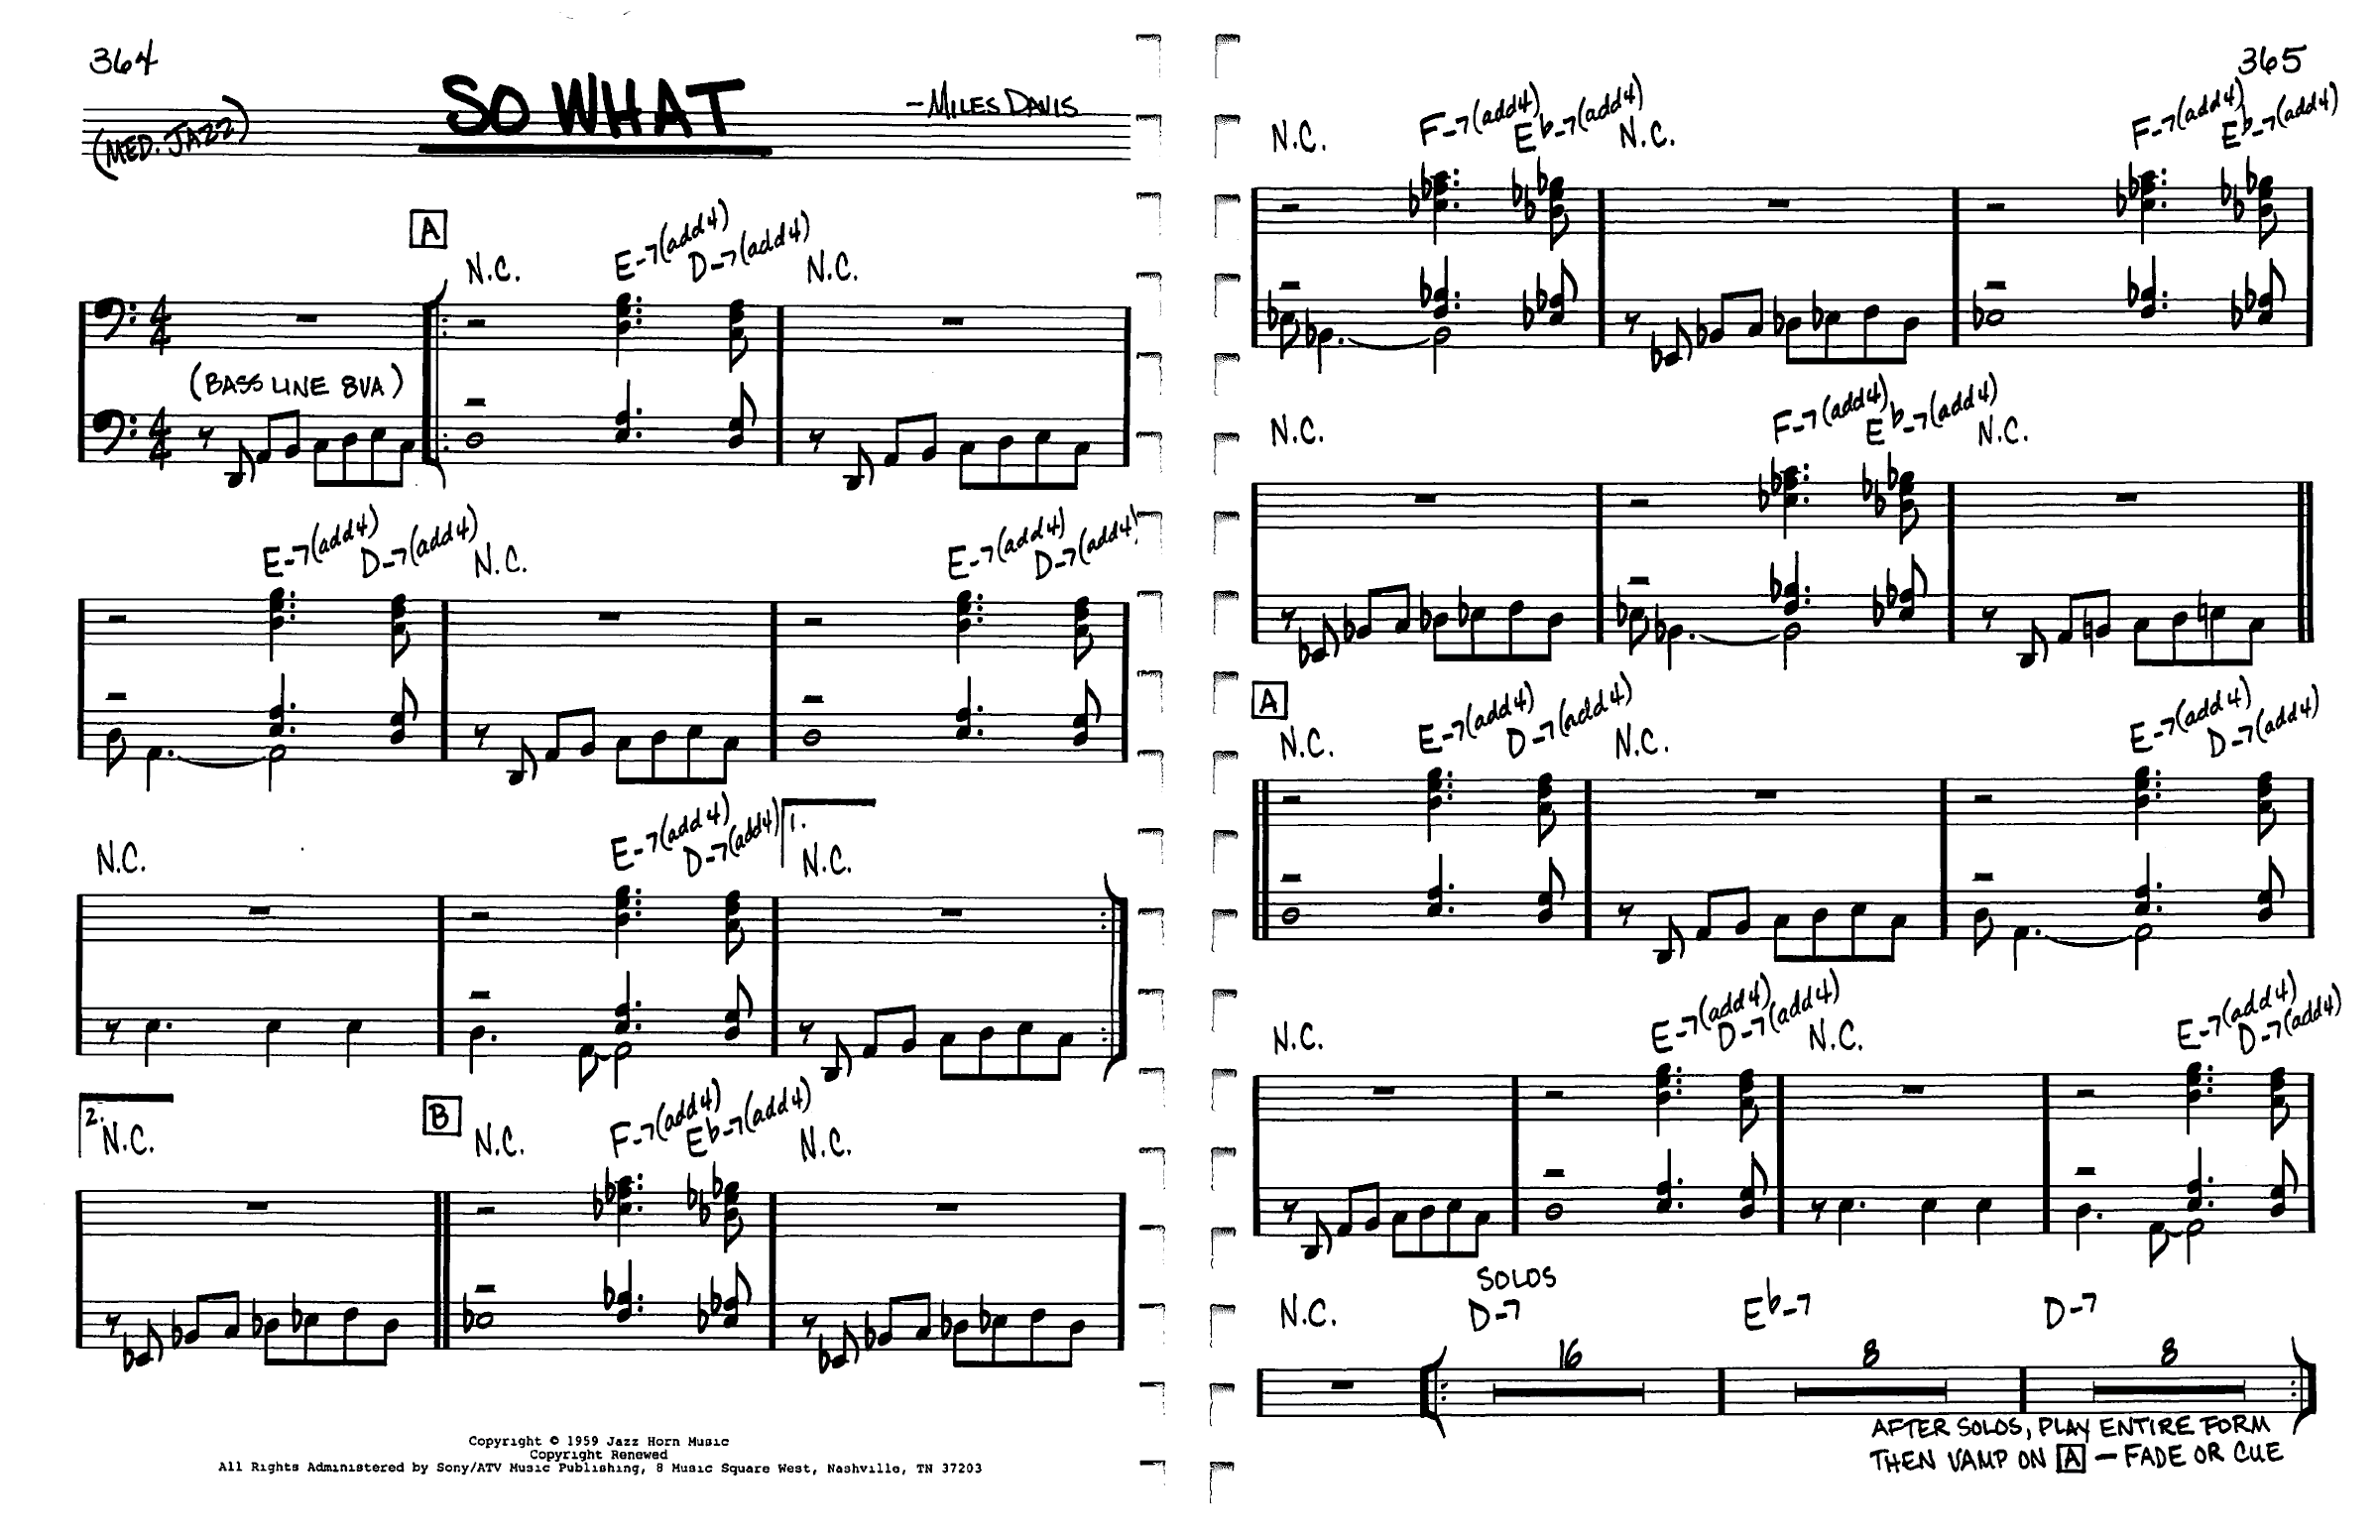 364
SO WHAT
(MED. JAZZ)
-MILES DAVIS
A
N.C. E-7(add4) D-7(add4) N.C.
4 4
(BASS LINE 8VA)
4 4
E-7(add4) D-7(add4) N.C. E-7(add4) D-7(add4)
N.C. E-7(add4) D-7(add4) 1. N.C.
2. N.C. B N.C. F-7(add4) E♭-7(add4) N.C.
Copyright © 1959 Jazz Horn Music
Copyright Renewed
All Rights Administered by Sony/ATV Music Publishing, 8 Music Square West, Nashville, TN 37203
365
N.C. F-7(add4) E♭-7(add4) N.C. F-7(add4) E♭-7(add4)
N.C. F-7(add4) E♭-7(add4) N.C.
A
N.C. E-7(add4) D-7(add4) N.C. E-7(add4) D-7(add4)
N.C. E-7(add4) D-7(add4) N.C. E-7(add4) D-7(add4)
SOLOS
N.C. D-7 E♭-7 D-7
16 8 8
AFTER SOLOS, PLAY ENTIRE FORM
THEN VAMP ON A - FADE OR CUE